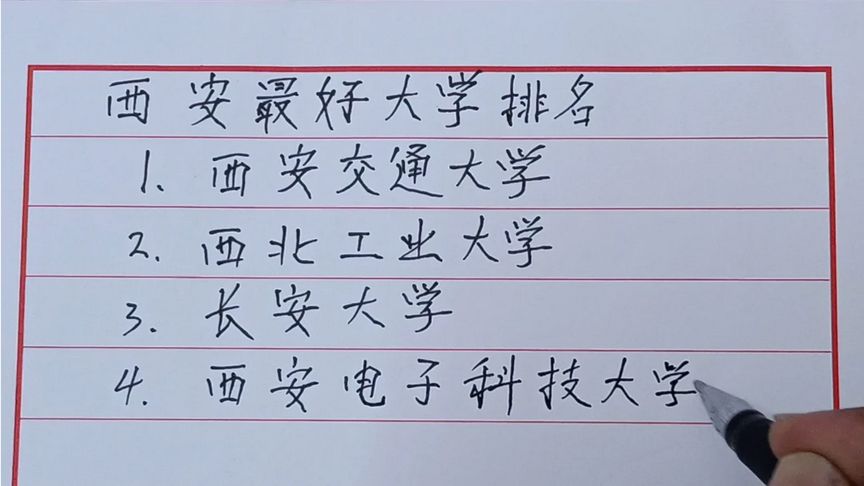 西安最好大学排名
1. 西安交通大学
2. 西北工业大学
3. 长安大学
4. 西安电子科技大学